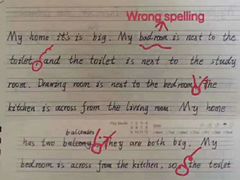 Wrong spelling
My home it's is big. My badroom is next to the
toilet and the toilet is next to the study
room. Drawing room is next to the bedroom. The
kitchen is across from the living room. My home
balconies
has two balcony. They are both big. My
bedroom is across from the kitchen, so the toilet